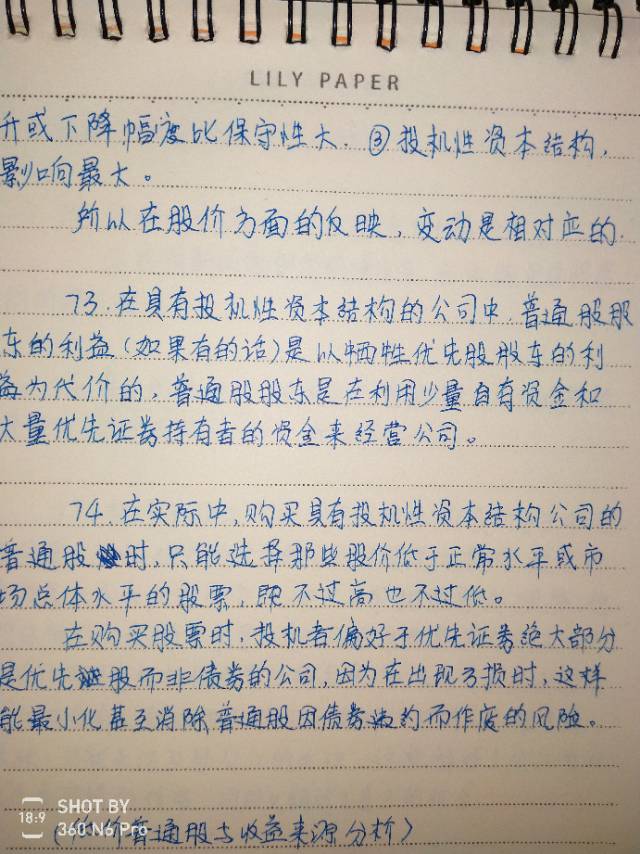 LILY PAPER
升或下降幅度比保守性大.③投机性资本结构,
影响最大。
所以在股价方面的反映,变动是相对应的.
73.在具有投机性资本结构的公司中,普通股股
东的利益(如果有的话)是以牺牲优先股股东的利
益为代价的,普通股股东是在利用少量自有资金和
大量优先证券持有者的资金来经营公司。
74.在实际中,购买具有投机性资本结构公司的
普通股时,只能选择那些股价低于正常水平或市
场总体水平的股票,既不过高也不过低。
在购买股票时,投机者偏好于优先证券绝大部分
是优先股而非债券的公司,因为在出现亏损时,这样
能最小化甚至消除普通股因债券违约而作废的风险。
(低价普通股与收益来源分析)
18:9
SHOT BY
360 N6 Pro